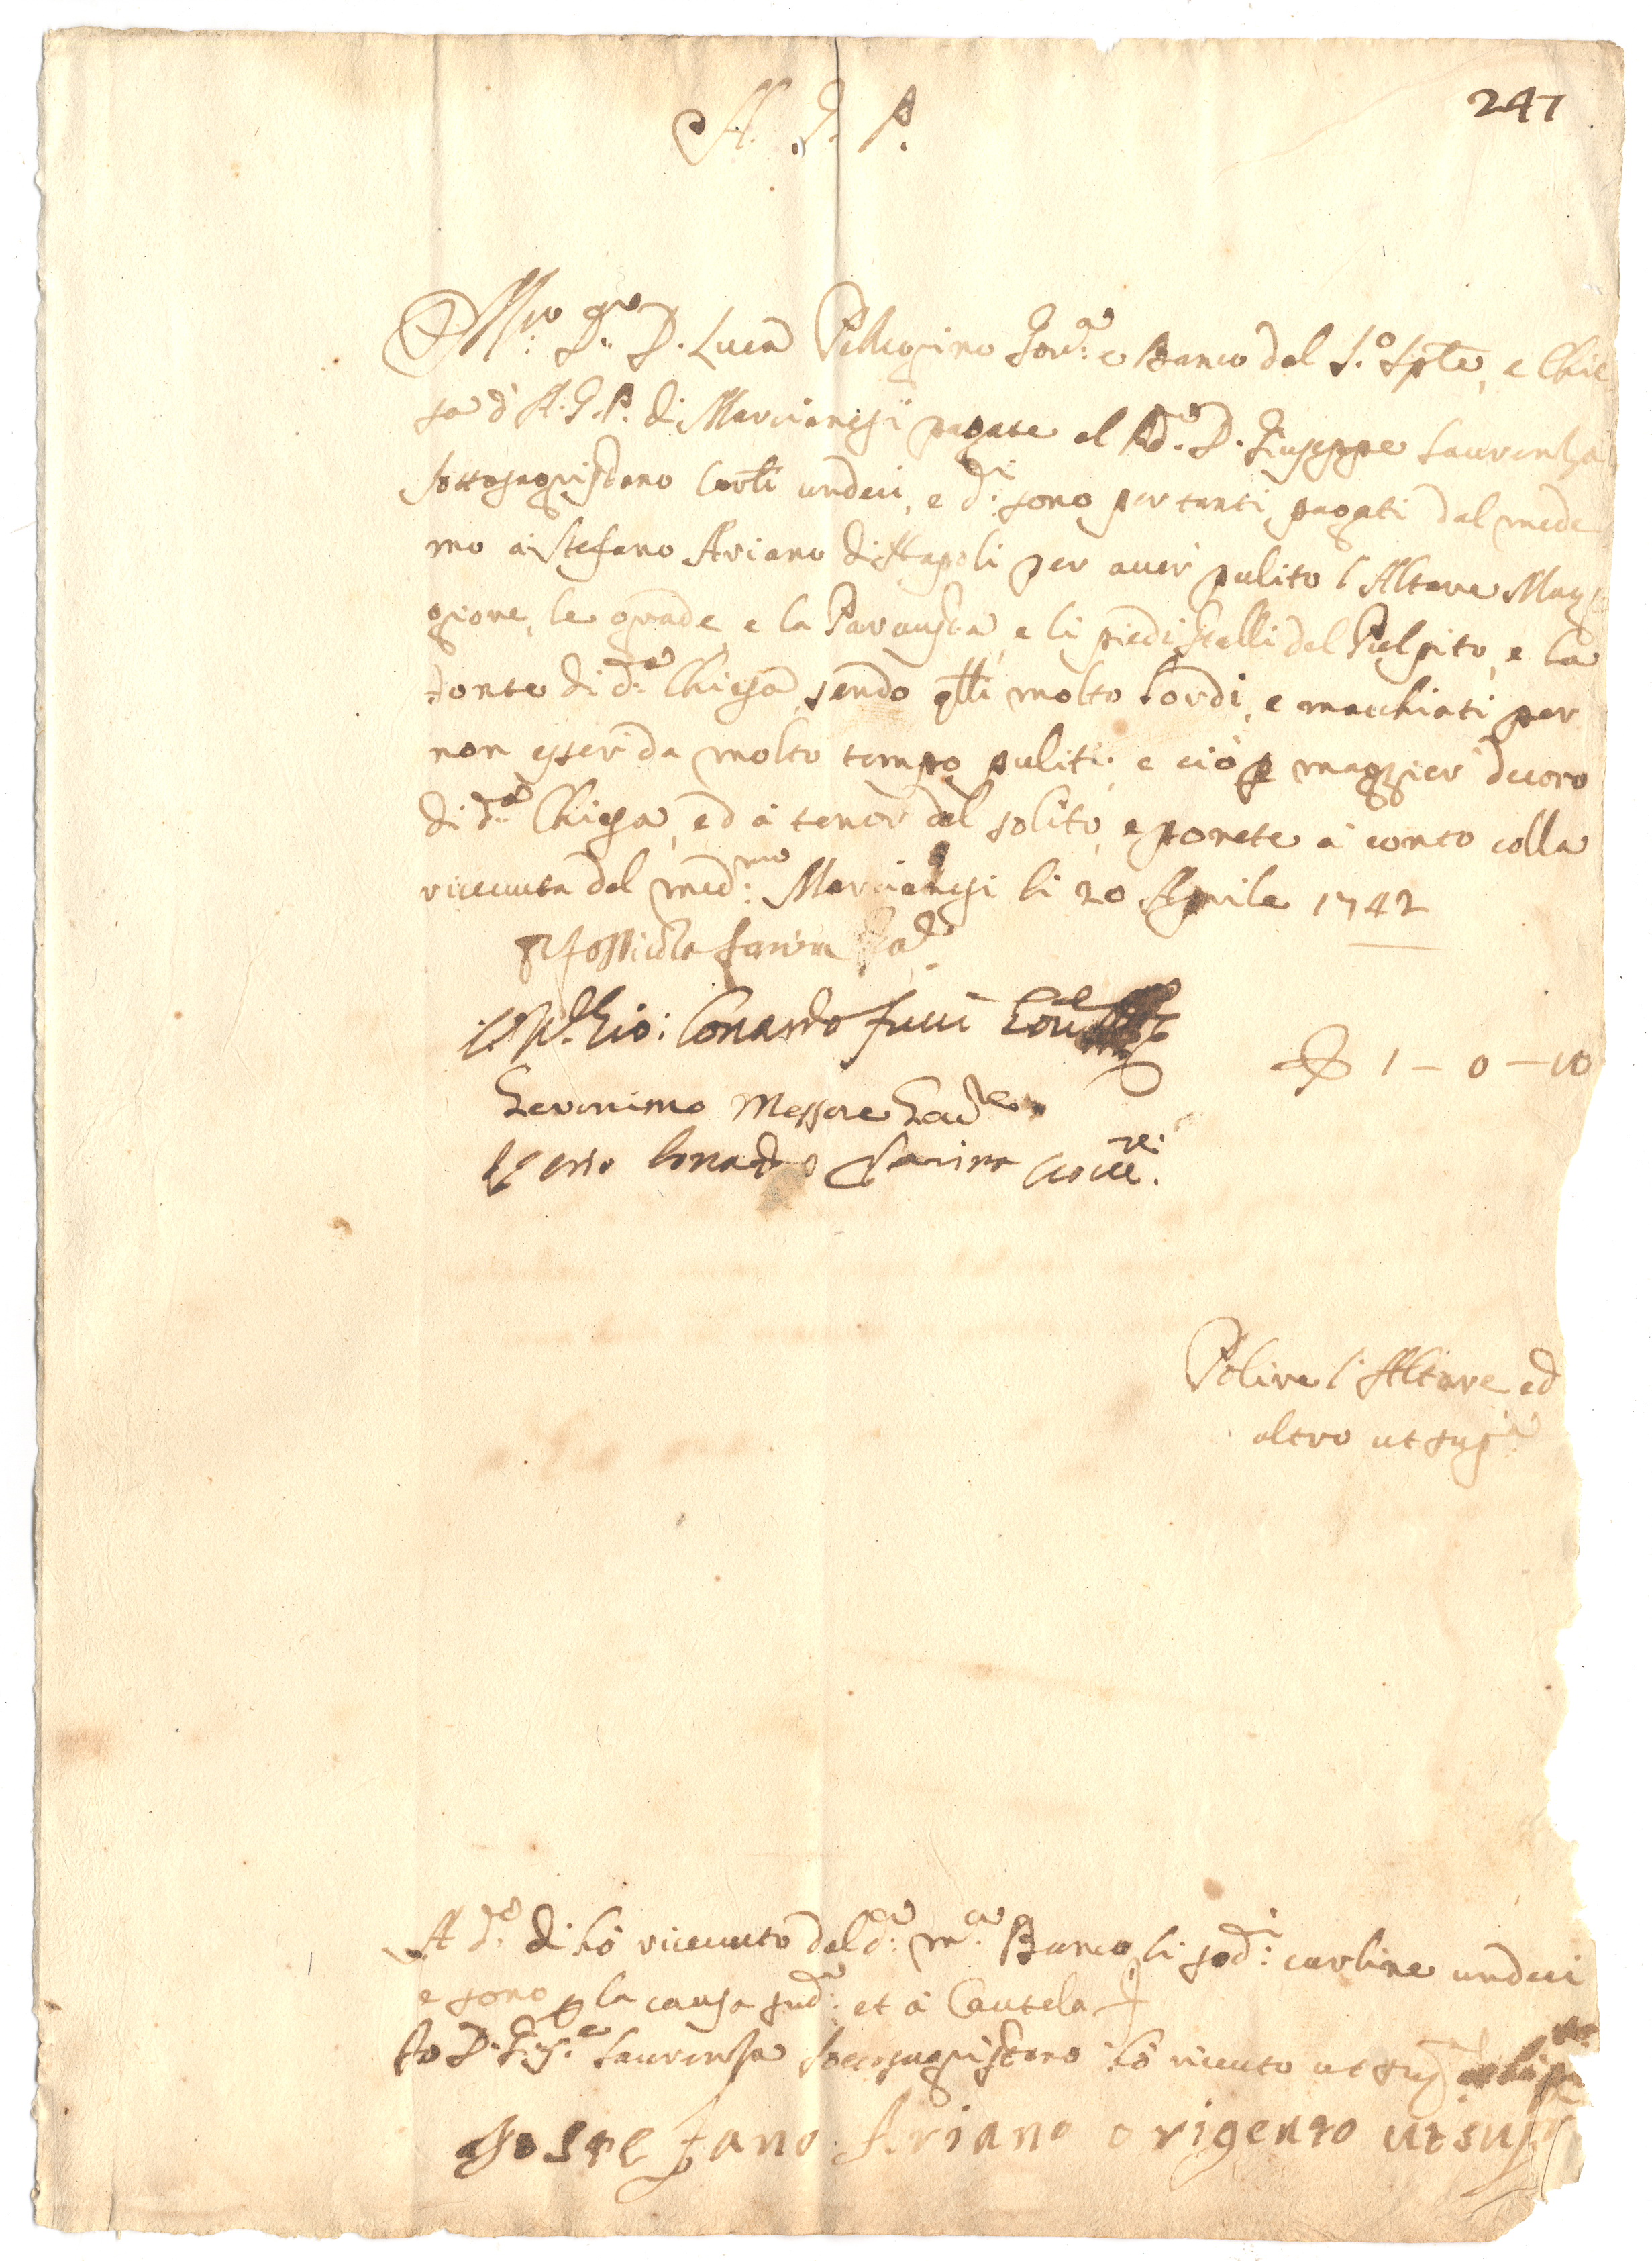 247
A. G. P.
Mco Sr. D. Luca Pellegrino Gov.e e Banco del S.o Spto, e Chie
sa d'A.G.P. di Marcianesi pagate al Rd.o D. Giuseppe Laurenza
sottosagristano carli undeci, e di sono per tanti pagati dal mede
mo a Stefano Ariano di Napoli per aver pulito l'Altare Mag
giore, le grade, e la Paraustra, e li piedistalli del Pulpito, e la
fonte di d.a Chiesa, sendo qlli molto lordi, e macchiati per
non esser da molto tempo puliti, e ciò p maggior decoro
di d.a Chiesa, ed à tenor del solito, e ponete à conto colla
riceuuta del med.mo Marcianesi li 20 Aprile 1742
Gio: Conardo
Geronimo Messore
Conardo Farina
1 – 0 – 10
Polire l'Altare ed
altro ut sup.a
A d.o di hò riceuuto dal d.o m.co Banco li sod.i carlini undeci
e sono p la causa sud.a et à Cautela
Io D. Gius.e Laurenza sottosagristano hò riceuto ut sup.a
Io Stefano Ariano origento ut sup